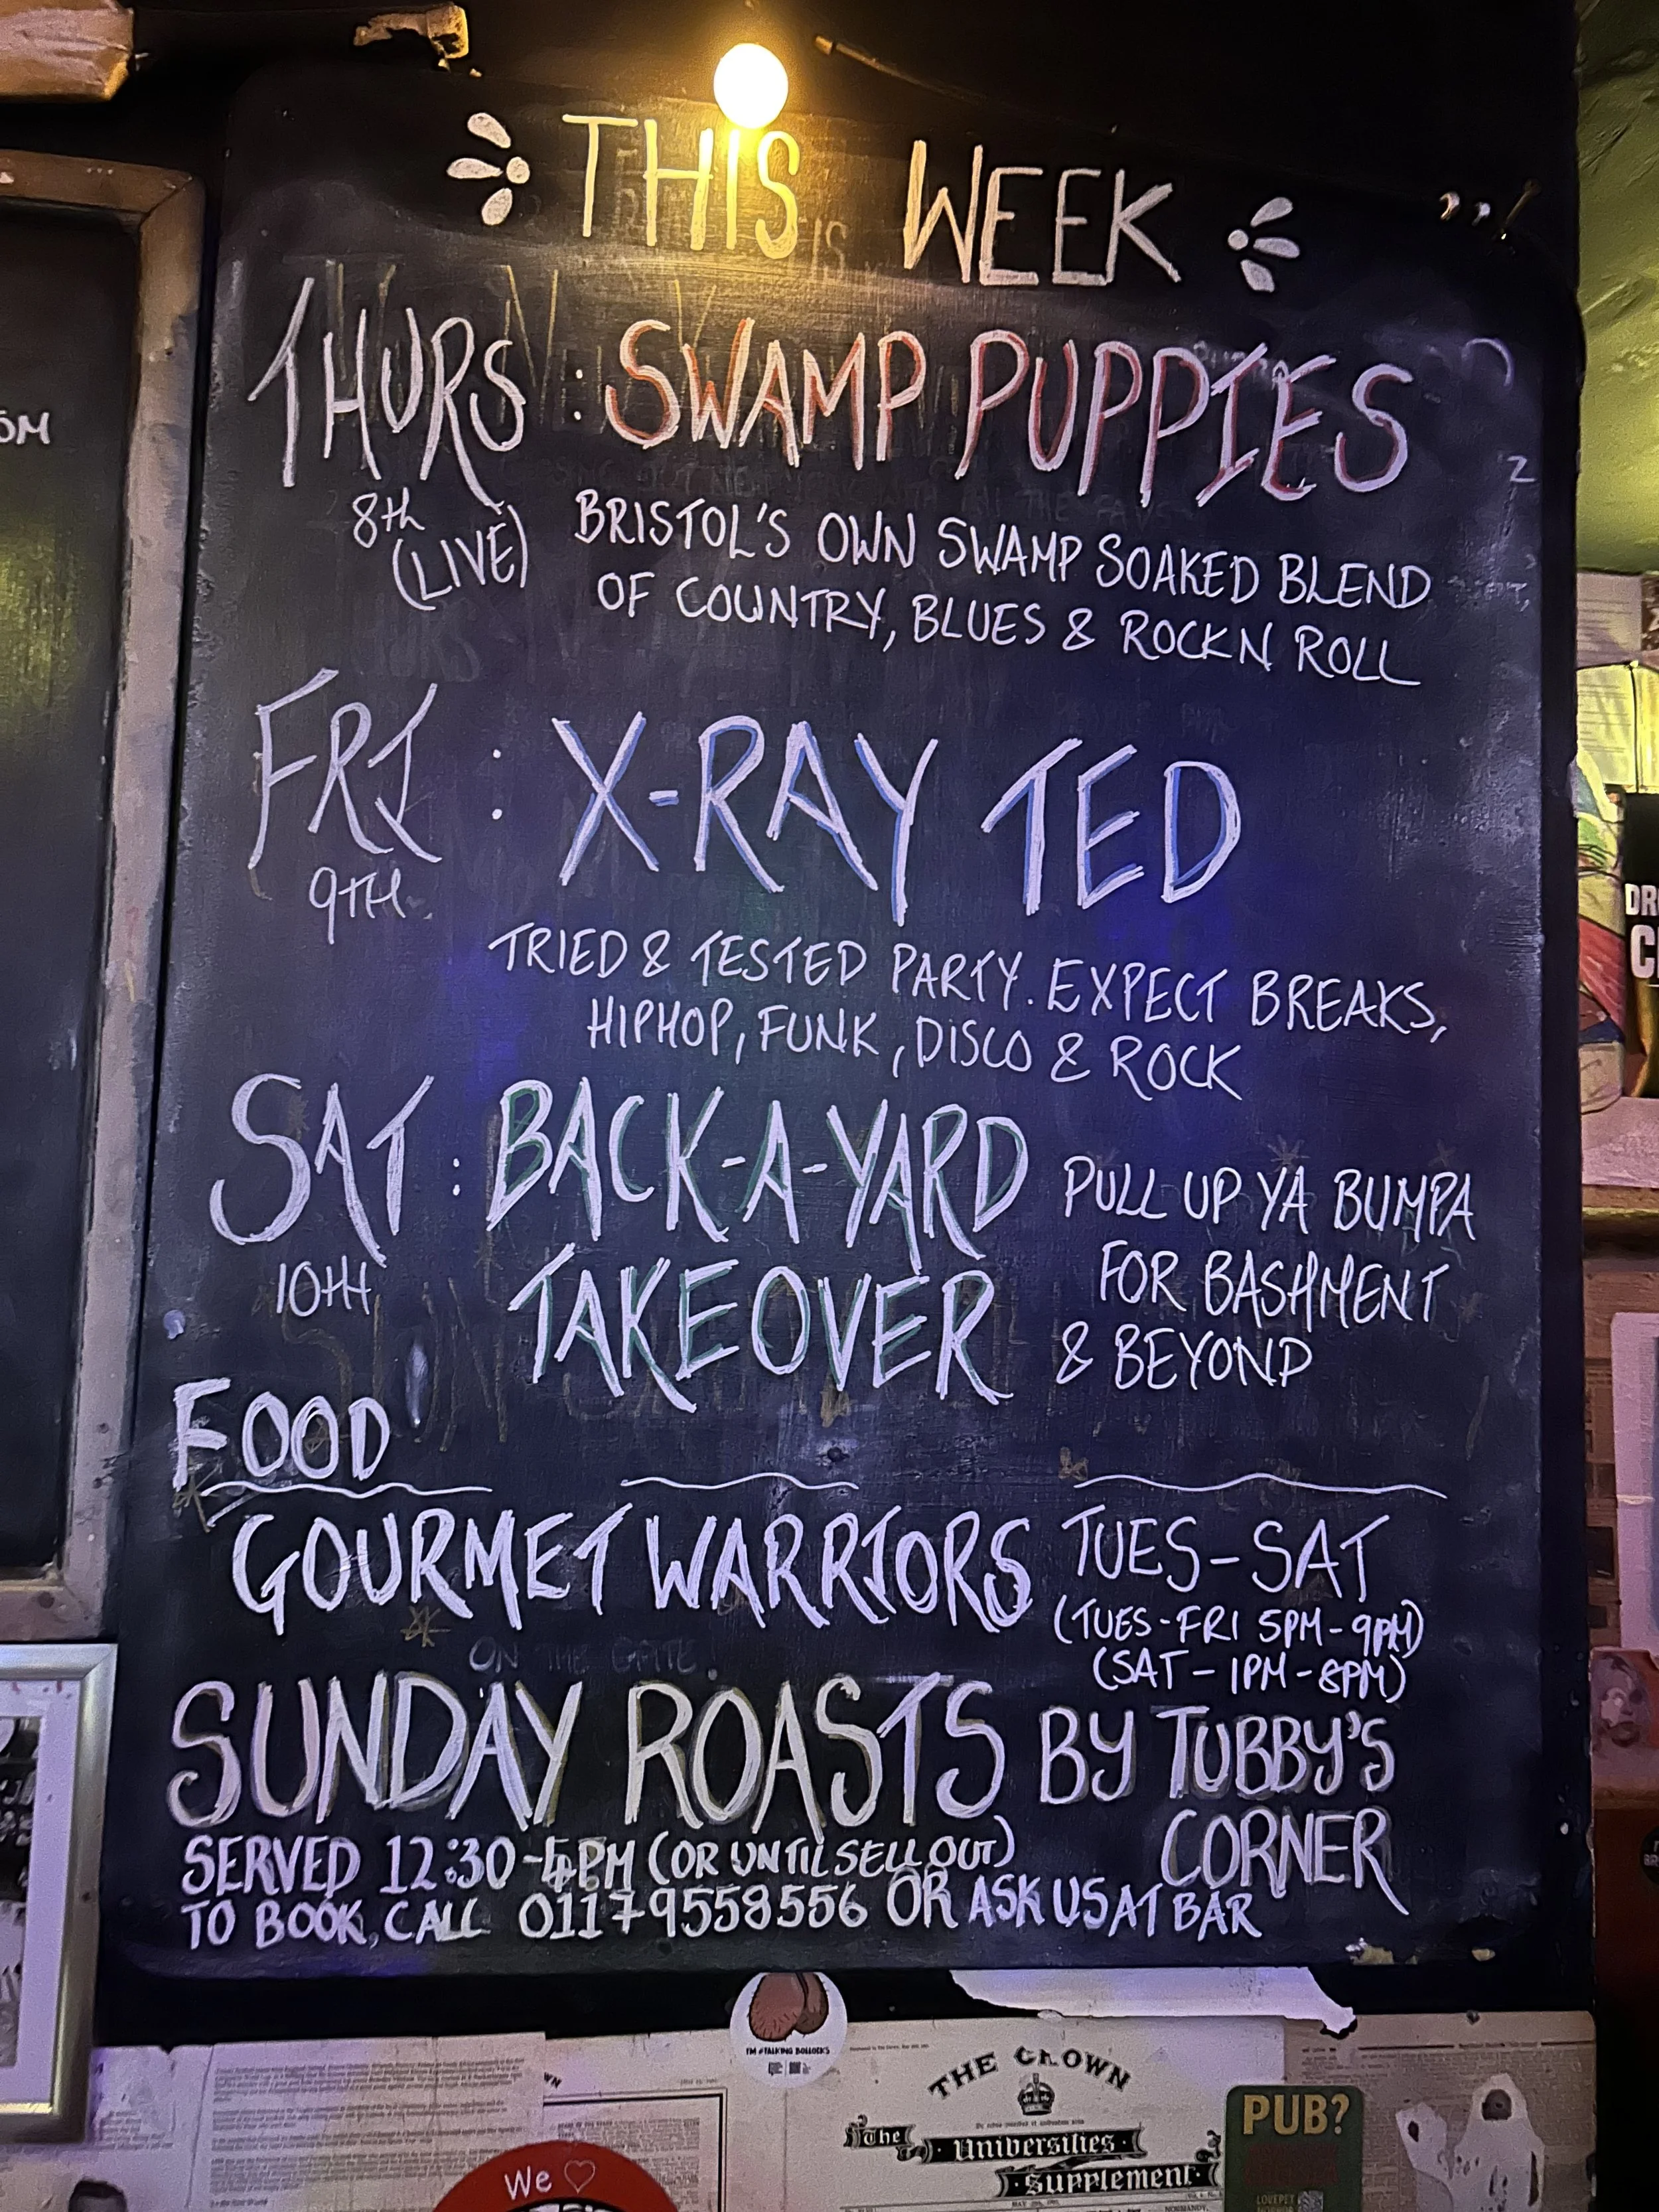 THIS WEEK
THURS : SWAMP PUPPIES
8th
(LIVE)
BRISTOL'S OWN SWAMP SOAKED BLEND
OF COUNTRY, BLUES & ROCK N ROLL
FRI : X-RAY TED
9TH
TRIED & TESTED PARTY. EXPECT BREAKS,
HIPHOP, FUNK, DISCO & ROCK
SAT : BACK-A-YARD
10TH
TAKEOVER
PULL UP YA BUMPA
FOR BASHMENT
& BEYOND
FOOD
GOURMET WARRIORS
TUES-SAT
(TUES-FRI 5PM-9PM)
(SAT-1PM-8PM)
ON THE GATE.
SUNDAY ROASTS BY TUBBY'S
CORNER
SERVED 12:30-4PM (OR UNTIL SELL OUT)
TO BOOK, CALL 01179558556 OR ASK US AT BAR
I'M #TALKING BOLLOCKS
THE CROWN
The
Universities
Supplement.
PUB?
We